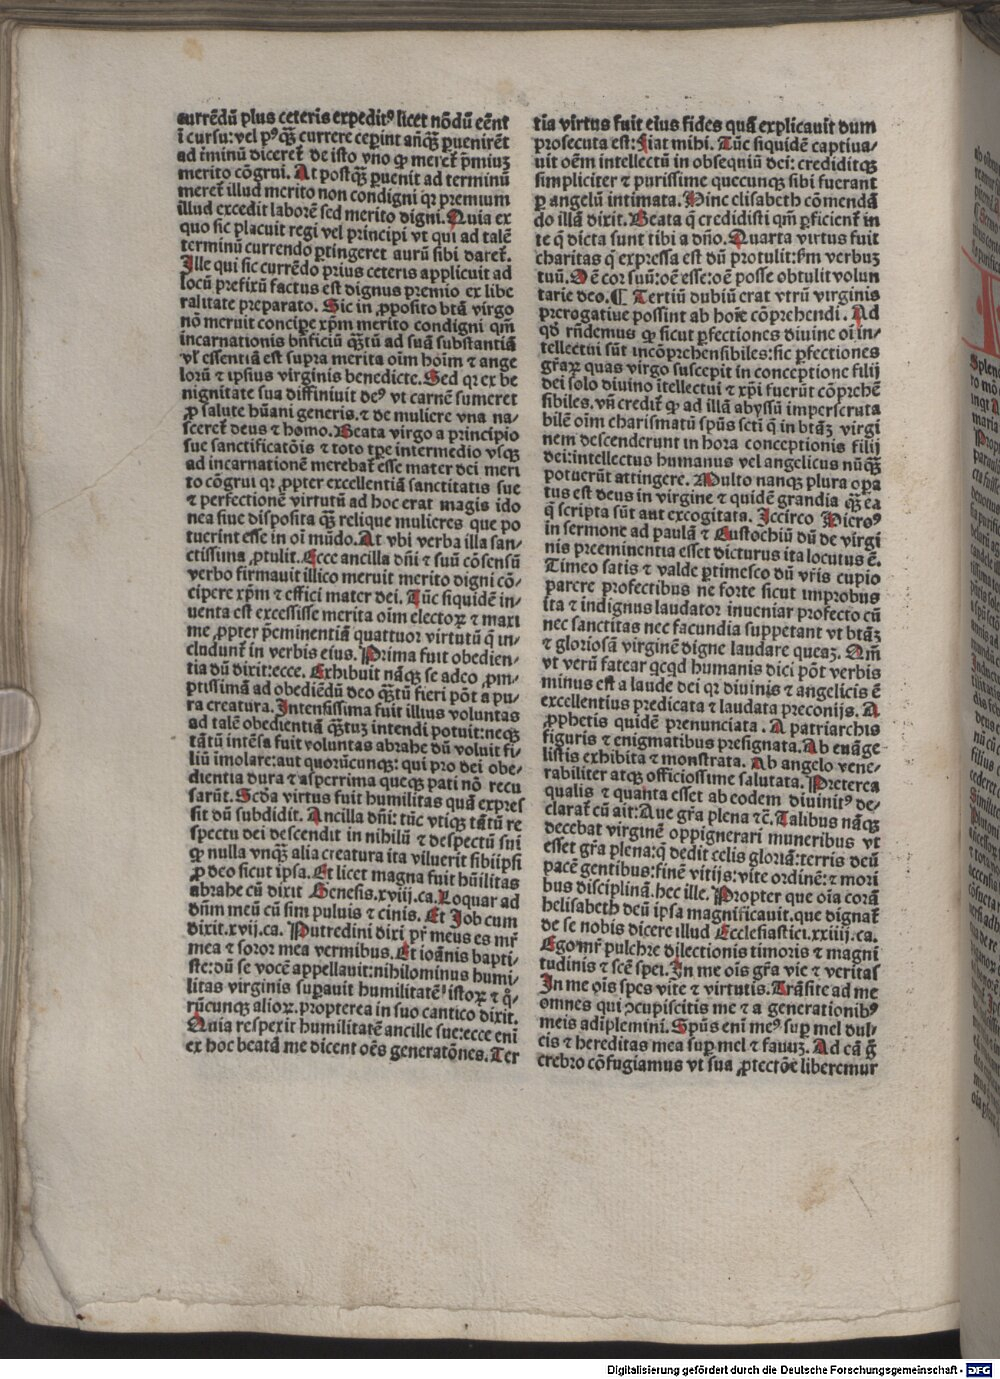 currēdū plus ceteris expeditꝰ licet nōdū eēnt
ī cursu: vel pꝰqꝫ currere ceperint añqꝫ ꝑuenirēt
ad īminū diceret̄ de isto vno ꝙ meret̄ p̄miuꝫ
merito cōgrui. At postqꝫ ꝑuenit ad terminū
meret̄ illud merito non condigni qꝛ premium
illud excedit laborē sed merito digni. Quia ex
quo sic placuit regi vel principi vt qui ad talē
terminū currendo ꝑtingeret aurū sibi daret̄.
Ille qui sic currēdo prius ceteris applicuit ad
locū prefixū factus est dignus premio ex libe
ralitate preparato. Sic in ꝓposito btā virgo
nō meruit concipe xp̄m merito condigni qm̄
incarnationis bn̄ficiū qꝫtū ad suā substantiā
vl̓ essentiā est supra merita oīm hoīm ⁊ ange
lorū ⁊ ipsius virginis benedicte. Sed qꝛ ex be
nignitate sua diffiniuit deꝰ vt carnē sumeret
ꝓ salute hūani generis. ⁊ de muliere vna na⸗
sceret̄ deus ⁊ homo. Beata virgo a principio
sue sanctificatōis ⁊ toto tꝑe intermedio vsqꝫ
ad incarnationē merebat̄ esse mater dei meri
to cōgrui qꝛ ꝓpter excellentiā sanctitatis sue
⁊ perfectionē virtutū ad hoc erat magis ido
nea siue disposita qꝫ relique mulieres que po
tuerint esse in oī mūdo. At vbi verba illa san⸗
ctissima ꝓtulit. Ecce ancilla dn̄i ⁊ suū cōsensū
verbo firmauit illico meruit merito digni cō⸗
cipere xp̄m ⁊ effici mater dei. Tūc siquidē in⸗
uenta est excessisse merita oīm electoꝝ ⁊ maxi
me ꝓpter p̄eminentiā quattuor virtutū q̄ in⸗
cludunt̄ in verbis eius. Prima fuit obedien⸗
tia dū dixit: ecce. Exhibuit nāqꝫ se adeo ꝓm⸗
ptissimā ad obediēdū deo qꝫtū fieri pōt a pu⸗
ra creatura. Intensissima fuit illius voluntas
ad talē obedientiā qꝫtuꝫ intendi potuit: neqꝫ
tātū intēsa fuit voluntas abrahe dū voluit fi⸗
liū imolare: aut quorūcunqꝫ: qui pro dei obe⸗
dientia dura ⁊ asperrima queqꝫ pati nō recu
sarūt. Scd̄a virtus fuit humilitas quā expres
sit dū subdidit. Ancilla dn̄i: tūc vtiqꝫ tātū re
spectu dei descendit in nihilū ⁊ despectū sui
ꝙ nulla vnqꝫ alia creatura ita viluerit sibiipsi
ꝓ deo sicut ipsa. Et licet magna fuit hūilitas
abrahe cū dixit Genesis.xviij.ca. Loquar ad
dn̄m meū cū sim puluis ⁊ cinis. Et Job cum
dixit.xvij.ca. Putredini dixi pr̄ meus es mr̄
mea ⁊ soror mea vermibus. Et ioānis bapti⸗
ste: dū se vocē appellauit: nihilominus humi⸗
litas virginis suꝑauit humilitatē istoꝝ ⁊ q̊⸗
rūcunqꝫ alioꝝ. propterea in suo cantico dixit.
Quia respexit humilitatē ancille sue: ecce enī
ex hoc beatā me dicent oēs generatōnes. Ter
tia virtus fuit eius fides quā explicauit dum
prosecuta est: Fiat mihi. Tūc siquidē captiua⸗
uit oēm intellectū in obsequiū dei: crediditqꝫ
simpliciter ⁊ purissime quecunqꝫ sibi fuerant
ꝑ angelū intimata. Hinc elisabeth cōmendā
do illā dixit. Beata q̄ credidisti qm̄ ꝑficient̄ in
te q̄ dicta sunt tibi a dn̄o. Quarta virtus fuit
charitas q̄ expressa est dū protulit: s̄m verbuꝫ
tuū. Oē cor suū: oē esse: oē posse obtulit volun
tarie deo. ¶ Tertiū dubiū erat vtrū virginis
prerogatiue possint ab hoīe cōprehendi. Ad
qd̄ rn̄demus ꝙ sicut ꝑfectiones diuine oī in⸗
tellectui sūt incōprehensibiles: sic ꝑfectiones
gr̄aꝝ quas virgo suscepit in conceptione filij
dei solo diuino ītellectui ⁊ xp̄i fuerūt cōprehē
sibiles. vn̄ credit̄ ꝙ ad illā abyssū imperscruta
bilē oīm charismatū sp̄us scti q̄ in btāꝫ virgi
nem descenderunt in hora conceptionis filij
dei: intellectus humanus vel angelicus nūqꝫ
potuerūt attingere. Multo nanqꝫ plura oꝑa
tus est deus in virgine ⁊ quidē grandia qꝫ ea
q̄ scripta sūt aut excogitata. Iccirco Hieroꝰ
in sermone ad paulā ⁊ Eustochiū dū de virgi
nis preeminentia esset dicturus ita locutus ē.
Timeo satis ⁊ valde ꝑtimesco dū vr̄is cupio
parere profectibus ne forte sicut improbus
ita ⁊ indignus laudator inueniar profecto cū
nec sanctitas nec facundia suppetant vt btāꝫ
⁊ gloriosā virginē digne laudare queaꝫ. Qm̄
vt verū fatear qcqd humanis dici pōt verbis
minus est a laude dei qꝛ diuinis ⁊ angelicis ē
excellentius predicata ⁊ laudata preconijs. A
ꝓphetis quidē prenunciata. A patriarchis
figuris ⁊ enigmatibus presignata. Ab euāge⸗
listis exhibita ⁊ monstrata. Ab angelo vene⸗
rabiliter atqꝫ officiossime salutata. Preterea
qualis ⁊ quanta esset ab eodem diuinitꝰ de⸗
clarat̄ cū ait: Aue gr̄a plena ⁊c̄. Talibus nāqꝫ
decebat virginē oppignerari muneribus vt
esset gr̄a plena: q̄ dedit celis gloriā: terris deū
pacē gentibus: finē vitijs: vite ordinē: ⁊ mori
bus disciplinā. hec ille. Propter que oīa corā
helisabeth deū ipsa magnificauit. que dignat̄
de se nobis dicere illud Ecclesiastici.xxiiij.ca.
Ego mr̄ pulchre dilectionis timoris ⁊ magni
tudinis ⁊ scē spei. In me oīs gr̄a vie ⁊ veritas
In me oīs spes vite ⁊ virtutis. Trāsite ad me
omnes qui ↄcupiscitis me ⁊ a generationibꝰ
meis adiplemini. Sp̄us enī meꝰ suꝑ mel dul⸗
cis ⁊ hereditas mea suꝑ mel ⁊ fauuꝫ. Ad eā g̊
crebro cōfugiamus vt sua ꝓtectōe liberemur
Digitalisierung gefördert durch die Deutsche Forschungsgemeinschaft - DFG